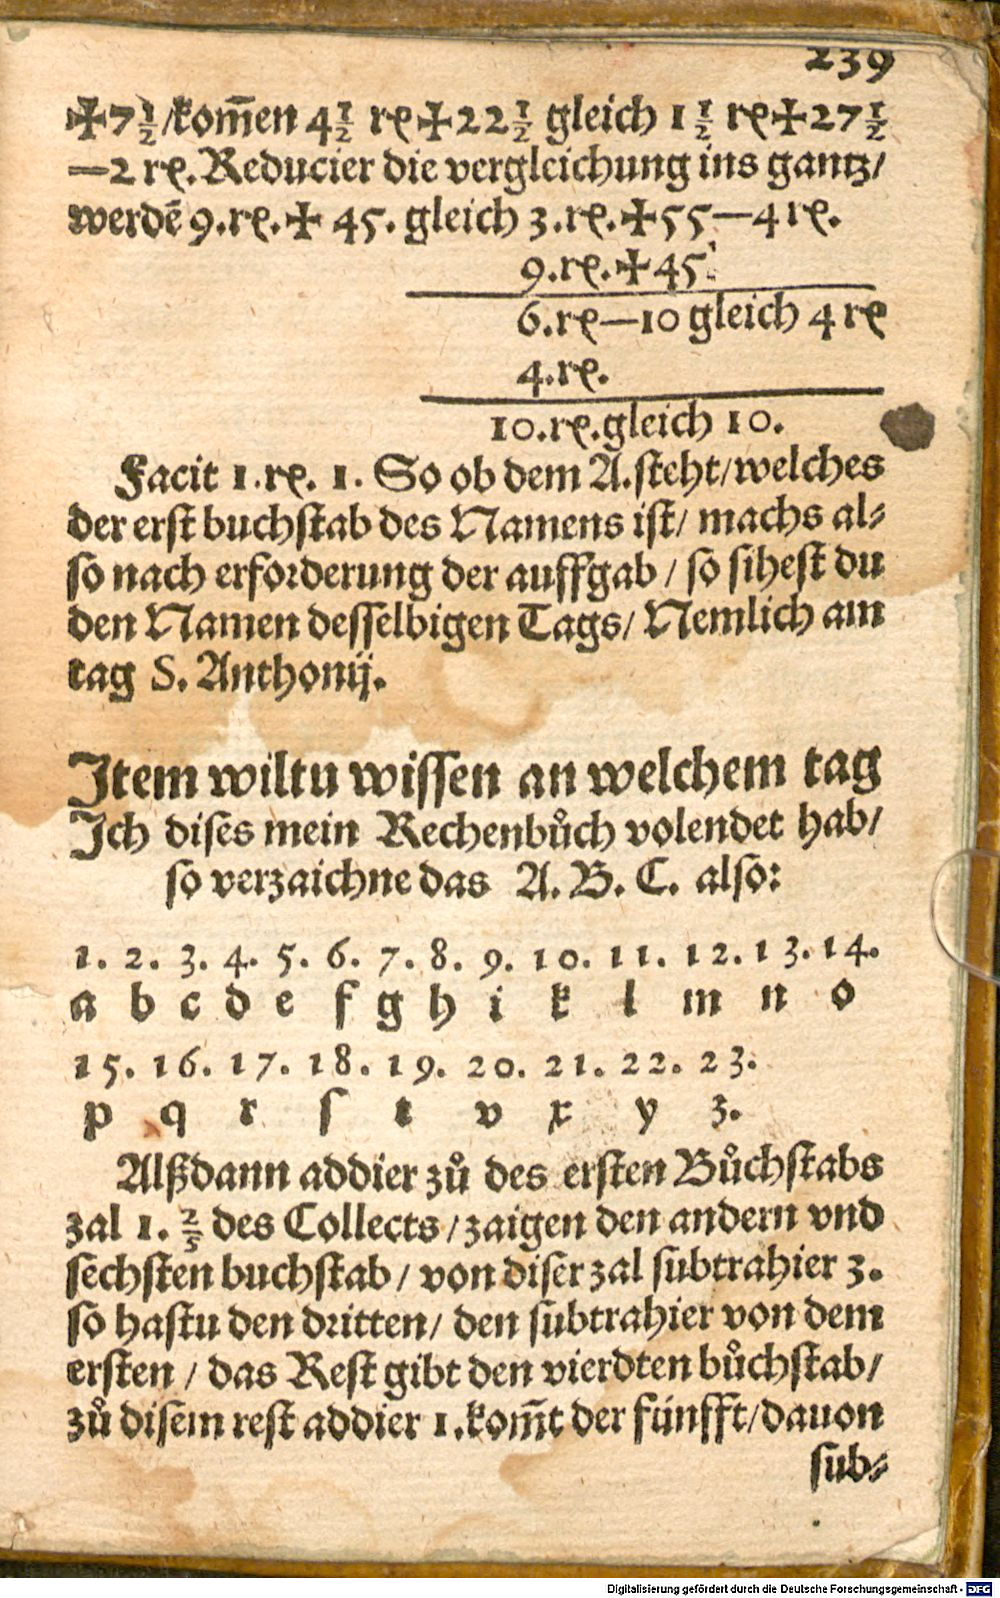 239
✠7½/kom̃en 4½ re✠22½ gleich 1½ re✠27½
—2 re. Reducier die vergleichung ins gantz/
werdē 9.re.✠ 45. gleich 3.re.✠55—4 re.
9.re.✠45
6.re—10 gleich 4 re
4.re.
10.re.gleich 10.
Facit 1.re. 1. So ob dem A.steht/welches
der erst buchstab des Namens ist/ machs al⸗
so nach erforderung der auffgab / so sihest du
den Namen desselbigen Tags/ Nemlich am
tag S. Anthonij.
Item wiltu wissen an welchem tag
Ich dises mein Rechenbůch volendet hab/
so verzaichne das A. B. C. also:
1. 2. 3. 4. 5. 6. 7. 8. 9. 10. 11. 12. 13. 14.
a b c d e f g h i k l m n o
15. 16. 17. 18. 19. 20. 21. 22. 23.
p q r s t v x y z.
Alßdann addier zů des ersten Bůchstabs
zal 1. 2/5 des Collects/zaigen den andern vnd
sechsten buchstab / von diser zal subtrahier 3.
so hastu den dritten/ den subtrahier von dem
ersten / das Rest gibt den vierdten bůchstab/
zů disem rest addier 1.kom̃t der fünfft/dauon
sub⸗
Digitalisierung gefördert durch die Deutsche Forschungsgemeinschaft - DFG